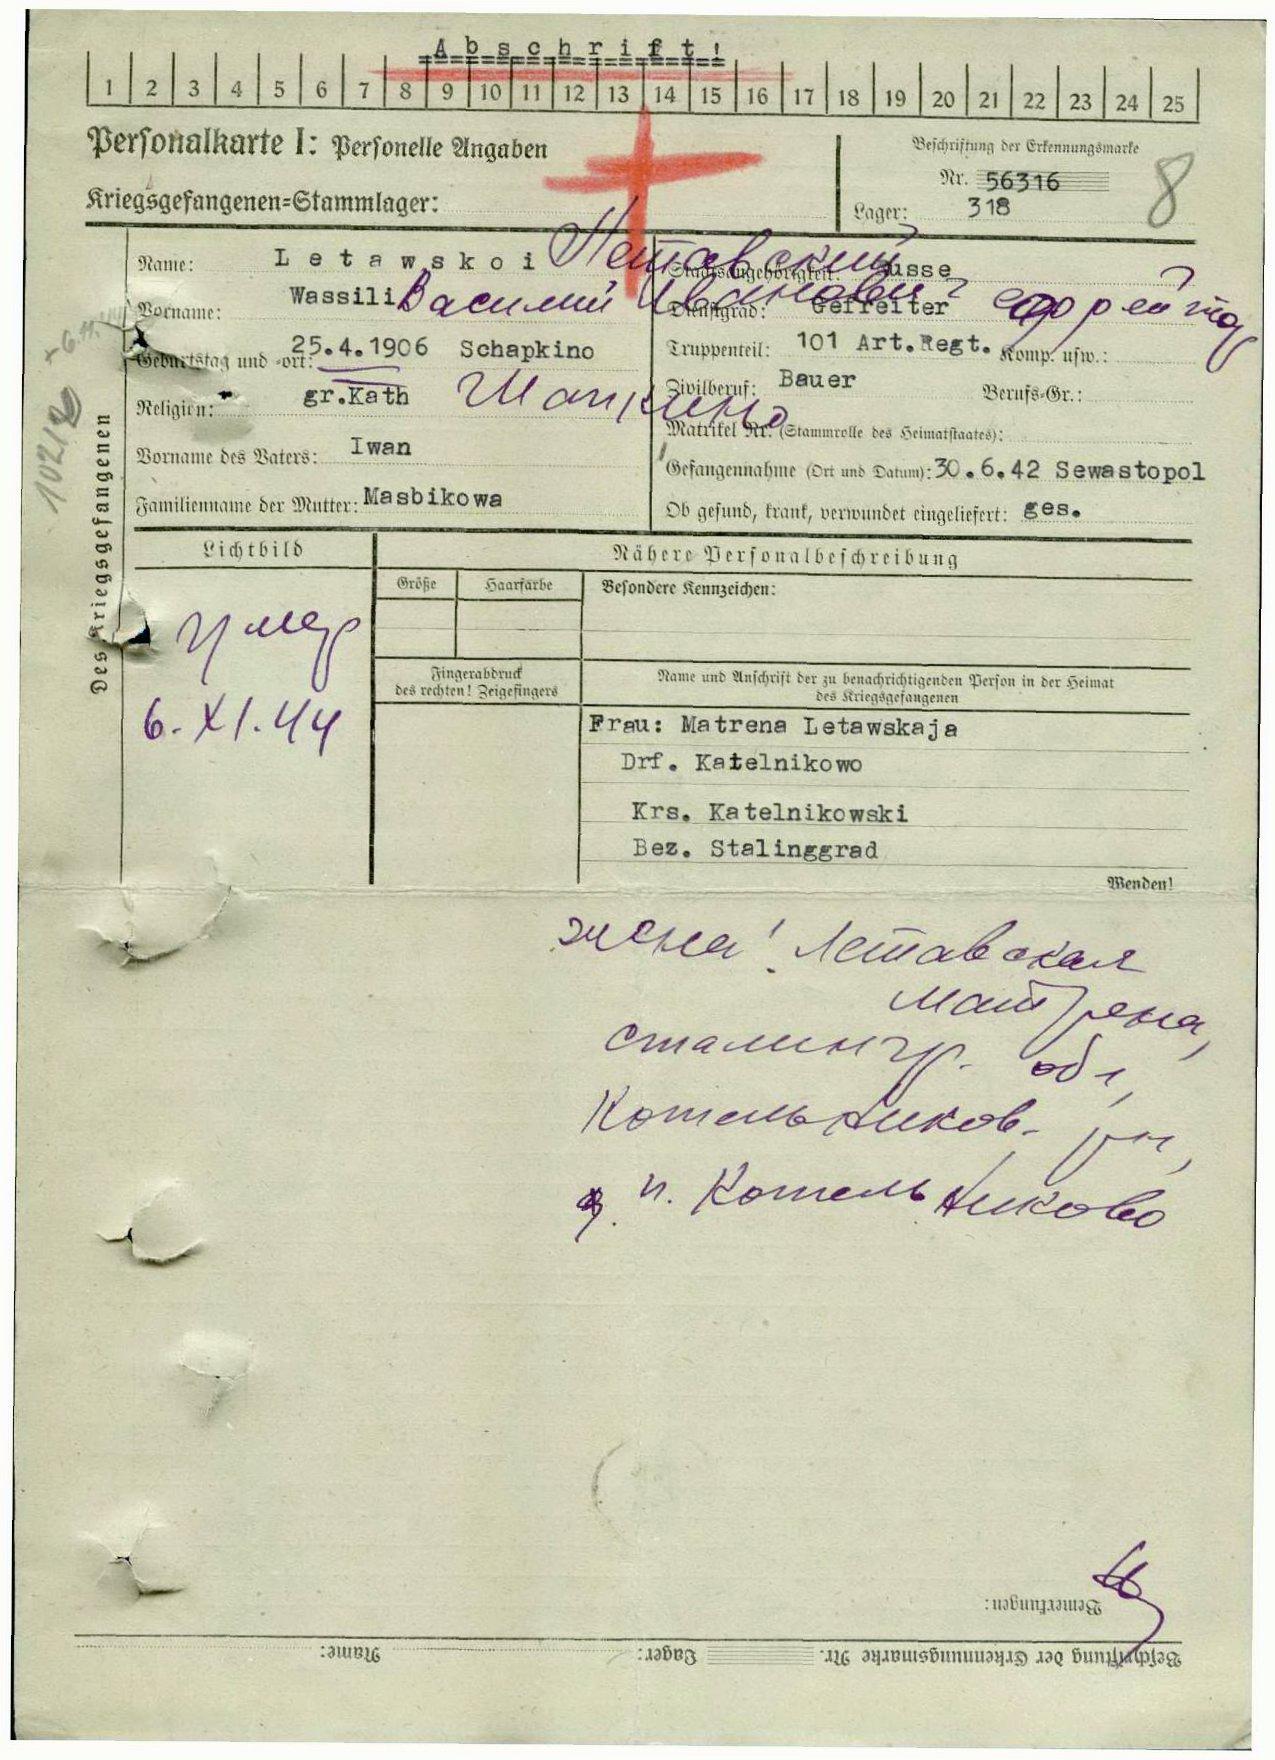 Abschrift!
1 2 3 4 5 6 7 8 9 10 11 12 13 14 15 16 17 18 19 20 21 22 23 24 25
Personalkarte I: Personelle Angaben
Kriegsgefangenen=Stammlager:
Beschriftung der Erkennungsmarke
Nr. 56316
Lager: 318
8
Des Kriegsgefangenen
Name: Letawskoi
Летавский
Staatsangehörigkeit: Russe
Vorname: Wassili
Василий Иванович
Dienstgrad: Gefreiter
ефрейтор
Geburtstag und -ort: 25.4.1906 Schapkino
Шапкино
Truppenteil: 101 Art.Regt. Komp. usw.:
Religion: gr.Kath
Zivilberuf: Bauer Berufs-Gr.:
Matrikel Nr. (Stammrolle des Heimatstaates):
Vorname des Vaters: Iwan
Gefangennahme (Ort und Datum): 30.6.42 Sewastopol
Familienname der Mutter: Masbikowa
Ob gesund, krank, verwundet eingeliefert: ges.
Lichtbild
Nähere Personalbeschreibung
Größe Haarfarbe Besondere Kennzeichen:
умер
6.XI.44
Fingerabdruck
des rechten! Zeigefingers
Name und Anschrift der zu benachrichtigenden Person in der Heimat
des Kriegsgefangenen
Frau: Matrena Letawskaja
Drf. Katelnikowo
Krs. Katelnikowski
Bez. Stalinggrad
Wenden!
жена! Летавская
Матрена,
Сталингр. обл,
Котельников. рн,
п. Котельниково
Bemerkungen:
Beschriftung der Erkennungsmarke Nr. Lager: Name: